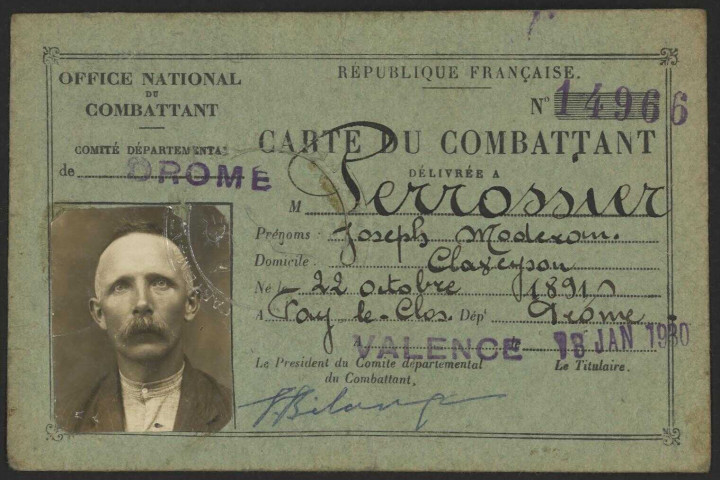 OFFICE NATIONAL
DU
COMBATTANT
COMITÉ DÉPARTEMENTAL
de DROME
RÉPUBLIQUE FRANÇAISE.
N° 14966
CARTE DU COMBATTANT
DÉLIVRÉE A
M Perrossier
Prénoms : Joseph Moderan.
Domicile : Claveyson
Né le 22 octobre 1891
A Fay-le-Clos. Dépt Drôme
A VALENCE le 13 JAN 1930
Le Président du Comité départemental
du Combattant,
Le Titulaire.